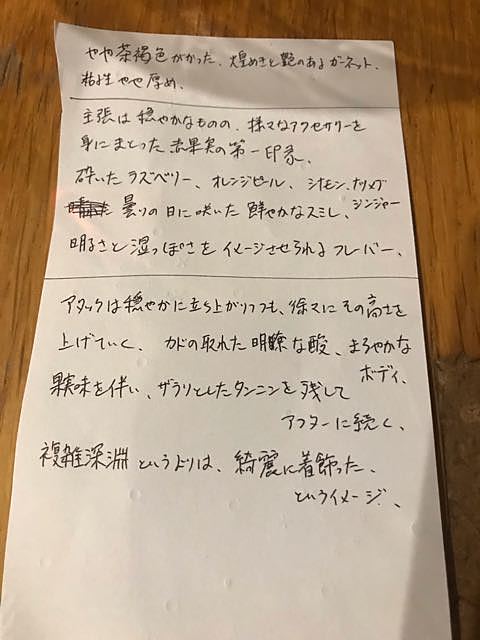 やや茶褐色がかった、煌めきと艶のあるガーネット、
粘性やや厚め、
主張は穏やかなものの、様々なアクセサリーを
身にまとった赤果実の第一印象、
砕いたラズベリー、オレンジピール、シナモン、ナツメグ
ジンジャー
曇りの日に咲いた鮮やかなスミレ、
明るさと湿っぽさをイメージさせられるフレーバー、
アタックは穏やかに立ち上がりつつも、徐々にその高さを
上げていく、カドの取れた明瞭な酸、まろやかな
ボディ、
果味を伴い、ザラリとしたタンニンを残して
アフターに続く、
複雑深淵というよりは、綺麗に着飾った、
というイメージ、